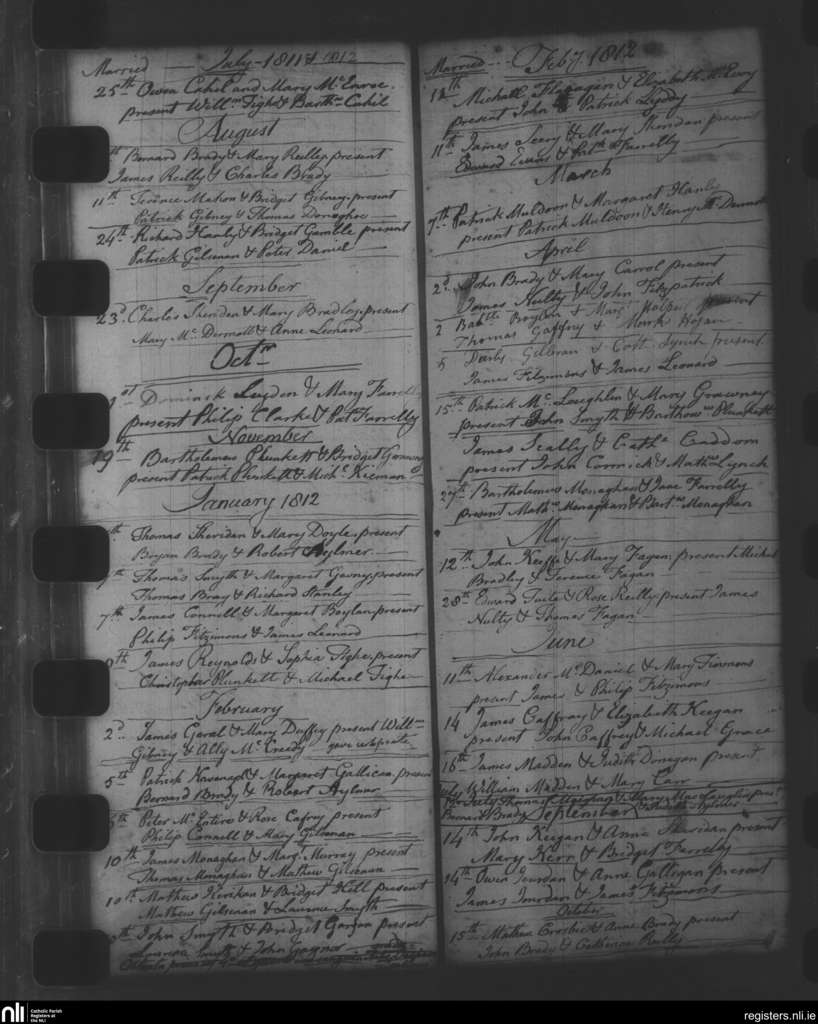 Married — July - 1811 & 1812
25th Owen Cahil and Mary Mc Enroe.
present Willm Tighe & Barthw Cahil
August
th Bernard Brady & Mary Reilly present
James Reilly & Charles Brady
11th Terence Mahon & Bridget Gibney, present
Patrick Gibney & Thomas Donaghoe
24th Richard Hanly & Bridget Gamble present
Patrick Gilsenan & Peter Daniel
September
23d. Charles Sheridan & Mary Bradley, present
Mary Mc. Dermott & Anne Leonard
Octr
st Dominick Leyden & Mary Farrell
present Philip Clarke & Pat Farrelly
November
19th Bartholemew Plunkett & Bridget
present Patrick Plunkett & Michl Kiernan
January 1812
th Thomas Sheridan & Mary Doyle, present
Bryan Brady & Robert Aylmer
th Thomas Smyth & Margaret Gavny, present
Thomas Bray & Richard Stanley
7th James Connell & Margaret Boylan present
Philip Fitzimons & James Leonard
9th James Reynolds & Sophia Tighe, present
Christopher Plunkett & Michael Tighe
February
2d. James Geral & Mary Duffey present Willm
Gibney & Ally Mc Creedy
5th Patrick Kavenagh & Margaret Gallican, present
Bernard Brady & Robert Aylmer
th Peter Mc. Entire & Rose Cafrey present
Philip Connell & Mary Gilsenan
10th James Monaghan & Margt Murray present
Thomas Monaghan & Mathew Gilsenan
10th Mathew Kerikan & Bridget Hill present
Mathew Gilsenan & Laurence Smyth
th John Smyth & Bridget Gargan present
Laurence Smyth & John Gaynor
Married — Feby. 1812
12th Michall Flanagan & Elizabeth Mc Evoy
present John & Patrick Lyddy
11th James Seery & Mary Sheridan present
Edward Evans & Farrelly
March
7th Patrick Muldoon & Margaret Hanly
present Patrick Muldoon & Henry Mc. Dermott
April
2d. John Brady & Mary Carrol present
James Nulty & John Fitzpatrick
2 Boylan & Margt present
Thomas Gaffney & Mark Hogan
5 Darby Gilsenan & Cath Lynch present
James Fitzimons & James Leonard
15th Patrick Mc. Loughlin & Mary
present John Smyth & Bartholw Plunkett
James Scally & Cathe Caddom
present John Cormick & Mathw Lynch
27th Bartholemew Monaghan & Jane Farrelly
present Mathw Monaghan & Bartw Monaghan
May
12th John Keeffe & Mary Fagan, present Michael
Bradley & Terence Fagan
28th Edward Tuite & Rose Reilly present James
Nulty & Thomas Fagan
June
11th Alexander Mc. Daniel & Mary Timmons
present James & Philip Fitzimons
14 James Caffray & Elizabeth Keegan
present John Caffrey & Michael Grace
16th James Madden & Judith Donegan present
William Madden & Mary Carr
July Thomas & Mary Mac Laughlin
Bernard Brady September
14th John Keegan & Anne Sheridan present
Mary Kerr & Bridget Farreley
14th Owen Jourdan & Anne Galligan present
James Jourdan & James Fitzimons
October
15th Mathew Crosbie & Anne Brady present
John Brady & Catherine Reilly
nli
Catholic Parish
Registers at
the NLI
registers.nli.ie